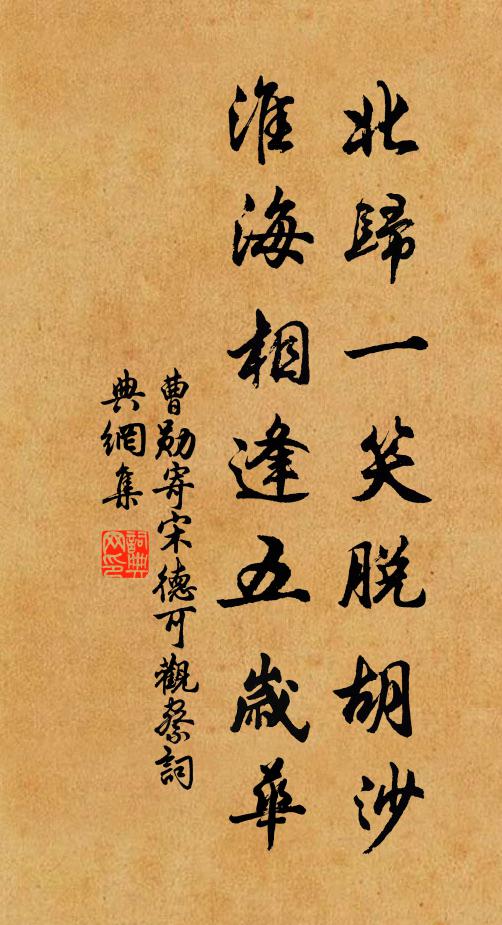 北歸一笑脫胡沙
淮海相逢五歲華
曹勛寄宋德可觀察詞
典網集
詞典網印